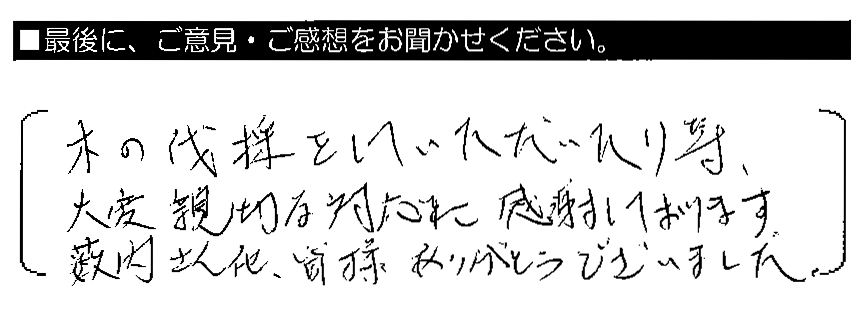 ■最後に、ご意見・ご感想をお聞かせください。
木の伐採をしていただいたり等、
大変親切な対応に感謝しております
薮内さん他、皆様ありがとうございました